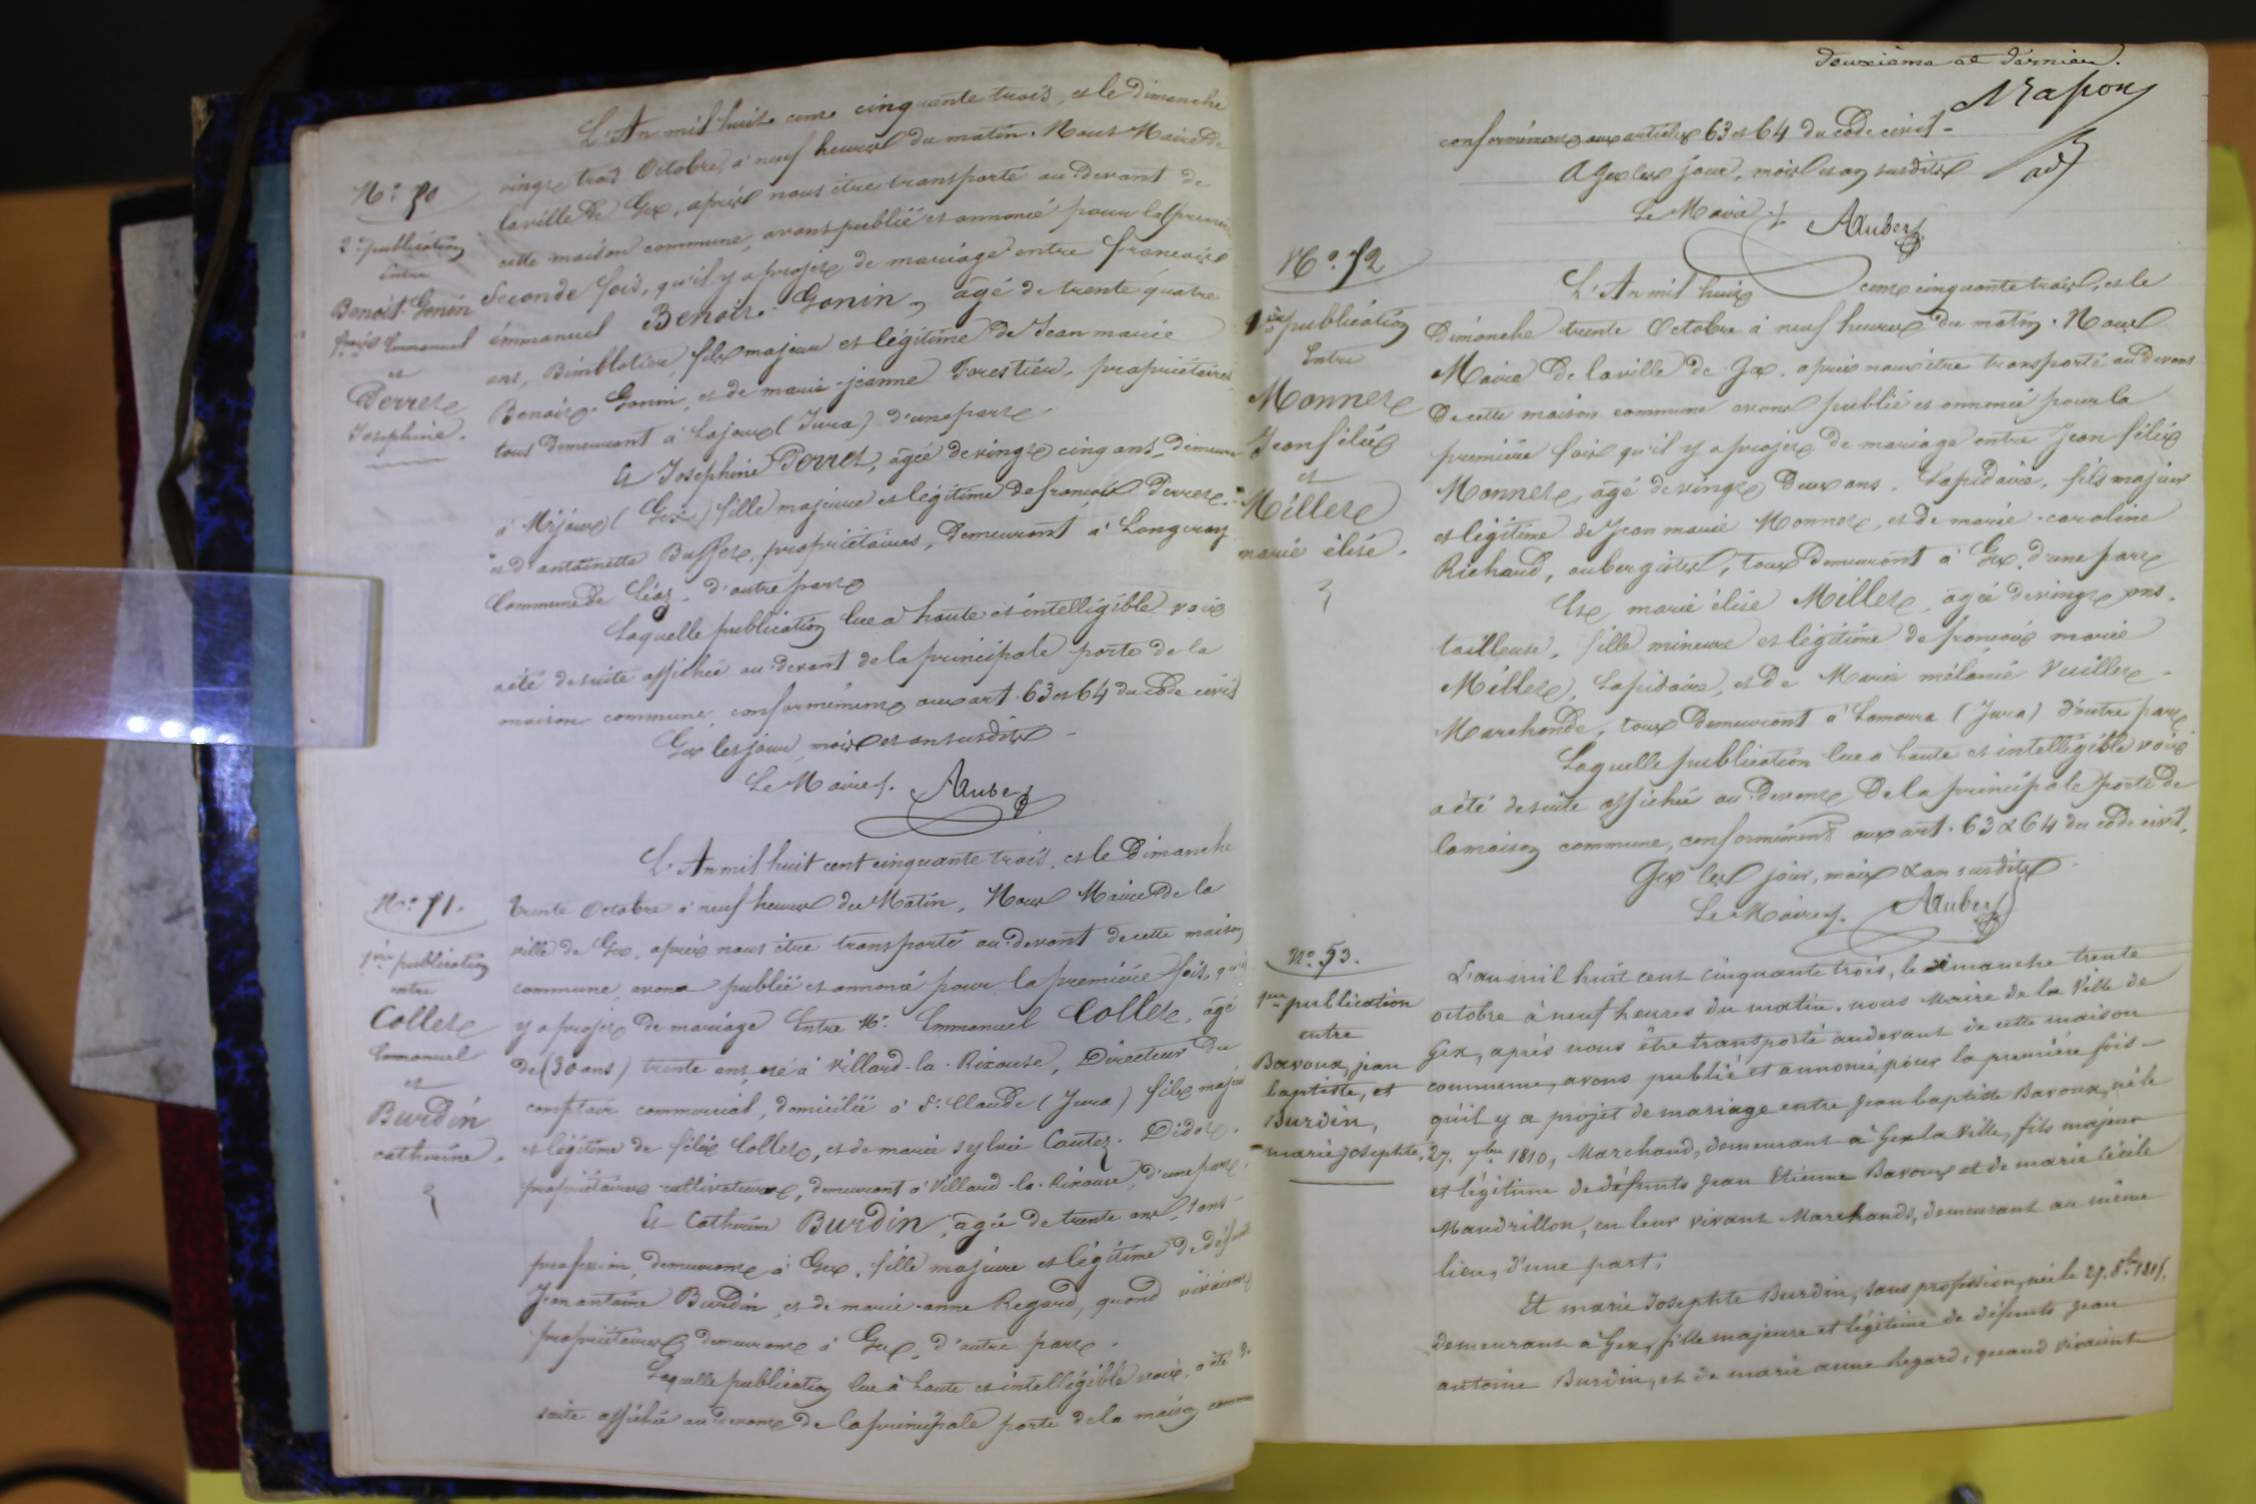 L'An mil huit cent cinquante trois, et le Dimanche
N.° 50
vingt trois Octobre, à neuf heures du matin. Nous Maire de
la ville de Gex, après nous être transporté au devant de
2.e publication
cette maison commune, avons publié et annoncé pour la
entre
Seconde fois, qu'il y a projet de mariage entre françois
Benoit-Gonin
émmanuel Benoit-Gonin, âgé de trente quatre
frçois Emmanuel
ans, Bimblotier, fils majeur et légitime de Jean marie
et
Benoit-Gonin, et de marie-jeanne Forestier, propriétaires
Perret
tous demeurant à Lajoux (Jura) d'une part.
Josephine.
Et Josephine Perret, âgée de vingt cinq ans, demeurant
à Mijoux (Gex) fille majeure et légitime de françois Perret
et d'antoinette Buffet, propriétaires, demeurant à Longeray
Commune de Léaz, d'autre part
Laquelle publication lue a haute et intelligible voix
a été de suite affichée au devant de la principale porte de la
maison commune, conformément aux art. 63 et 64 du Code civil
Gex les jour, mois et an susdits
Le Maire. AAubert
L'An mil huit cent cinquante trois, et le Dimanche
N.° 51.
trente Octobre à neuf heures du Matin, Nous Maire de la
ville de Gex, après nous être transporté au devant de cette maison
1ère publication
commune, avons publié et annoncé pour la première fois, qu'il
entre
y a projet de mariage Entre Mr. Emmanuel Collet, âgé
Collet
Emmanuel
de (30 ans) trente ans, né à Villard-la-Rixouse, Directeur du
et
comptoir commercial, domicilié à St. Claude (Jura) fils majeur
Burdin
et légitime de félix Collet, et de marie sylvie Cautez-Didot,
catherine.
propriétaires-cultivateurs, demeurant à Villard-la-Rixouse, d'une part.
Et Catherine Burdin, âgée de trente ans, sans
profession, demeurant à Gex, fille majeure et légitime de défunts
Jean antoine Burdin, et de marie-anne Regard, quand vivaient
propriétaires demeurant à Gex, d'autre part.
Laquelle publication lue à haute et intelligible voix, a été de
suite affichée au devant de la principale porte de la maison commune
Deuxième et dernier.
conformément aux articles 63 et 64 du Code civil.
A Gex les jour, mois et an susdits
Le Maire. AAubert
N.° 52
L'An mil huit cent cinquante trois, et le
1ère publication
Dimanche trente Octobre à neuf heures du matin. Nous
Entre
Maire de la ville de Gex, après nous être transporté au devant
Monnet
De cette maison commune avons publié et annoncé pour la
Jean félix
première fois qu'il y a projet de mariage entre Jean félix
et
Monnet, âgé de vingt Deux ans, Lapidaire, fils majeur
Millet
et légitime de Jean marie Monnet, et de marie-caroline
marie élisé.
Richard, aubergistes, tous demeurant à Gex, d'une part
Et marie élise Millet, âgée de vingt ans,
tailleuse, fille mineure et légitime de françois marie
Millet, Lapidaire, et de Marie mélanie Vuillet
Marchande, tous Demeurant à Lamoura (Jura) d'autre part
Laquelle publication lue a haute et intelligible voix
a été de suite affichée au devant De la principale porte de
la maison commune, conformément aux art. 63 & 64 du code civil.
Gex les jour, mois & an susdits
Le Maire. AAubert
N.° 53.
L'an mil huit cent cinquante trois, le dimanche trente
1ère publication
octobre à neuf heures du matin. nous Maire de la Ville de
entre
Gex, après nous être transporté au devant de cette maison
Bavoux, jean
commune, avons publié et annoncé, pour la première fois
baptiste, et
qu'il y a projet de mariage entre Jean baptiste Bavoux, né le
Burdin,
27. 7bre 1810, Marchand, demeurant à Gex la Ville, fils majeur
marie Josephte.
et légitime de défunts Jean Etienne Bavoux et de marie Cécile
Mandrillon, en leur vivant Marchands, demeurant au même
lieu, d'une part;
Et marie Josephte Burdin, sans profession, née le 27. 8bre 1815.
demeurant à Gex, fille majeure et légitime de défunts Jean
antoine Burdin, et de marie anne Regard, quand vivaient